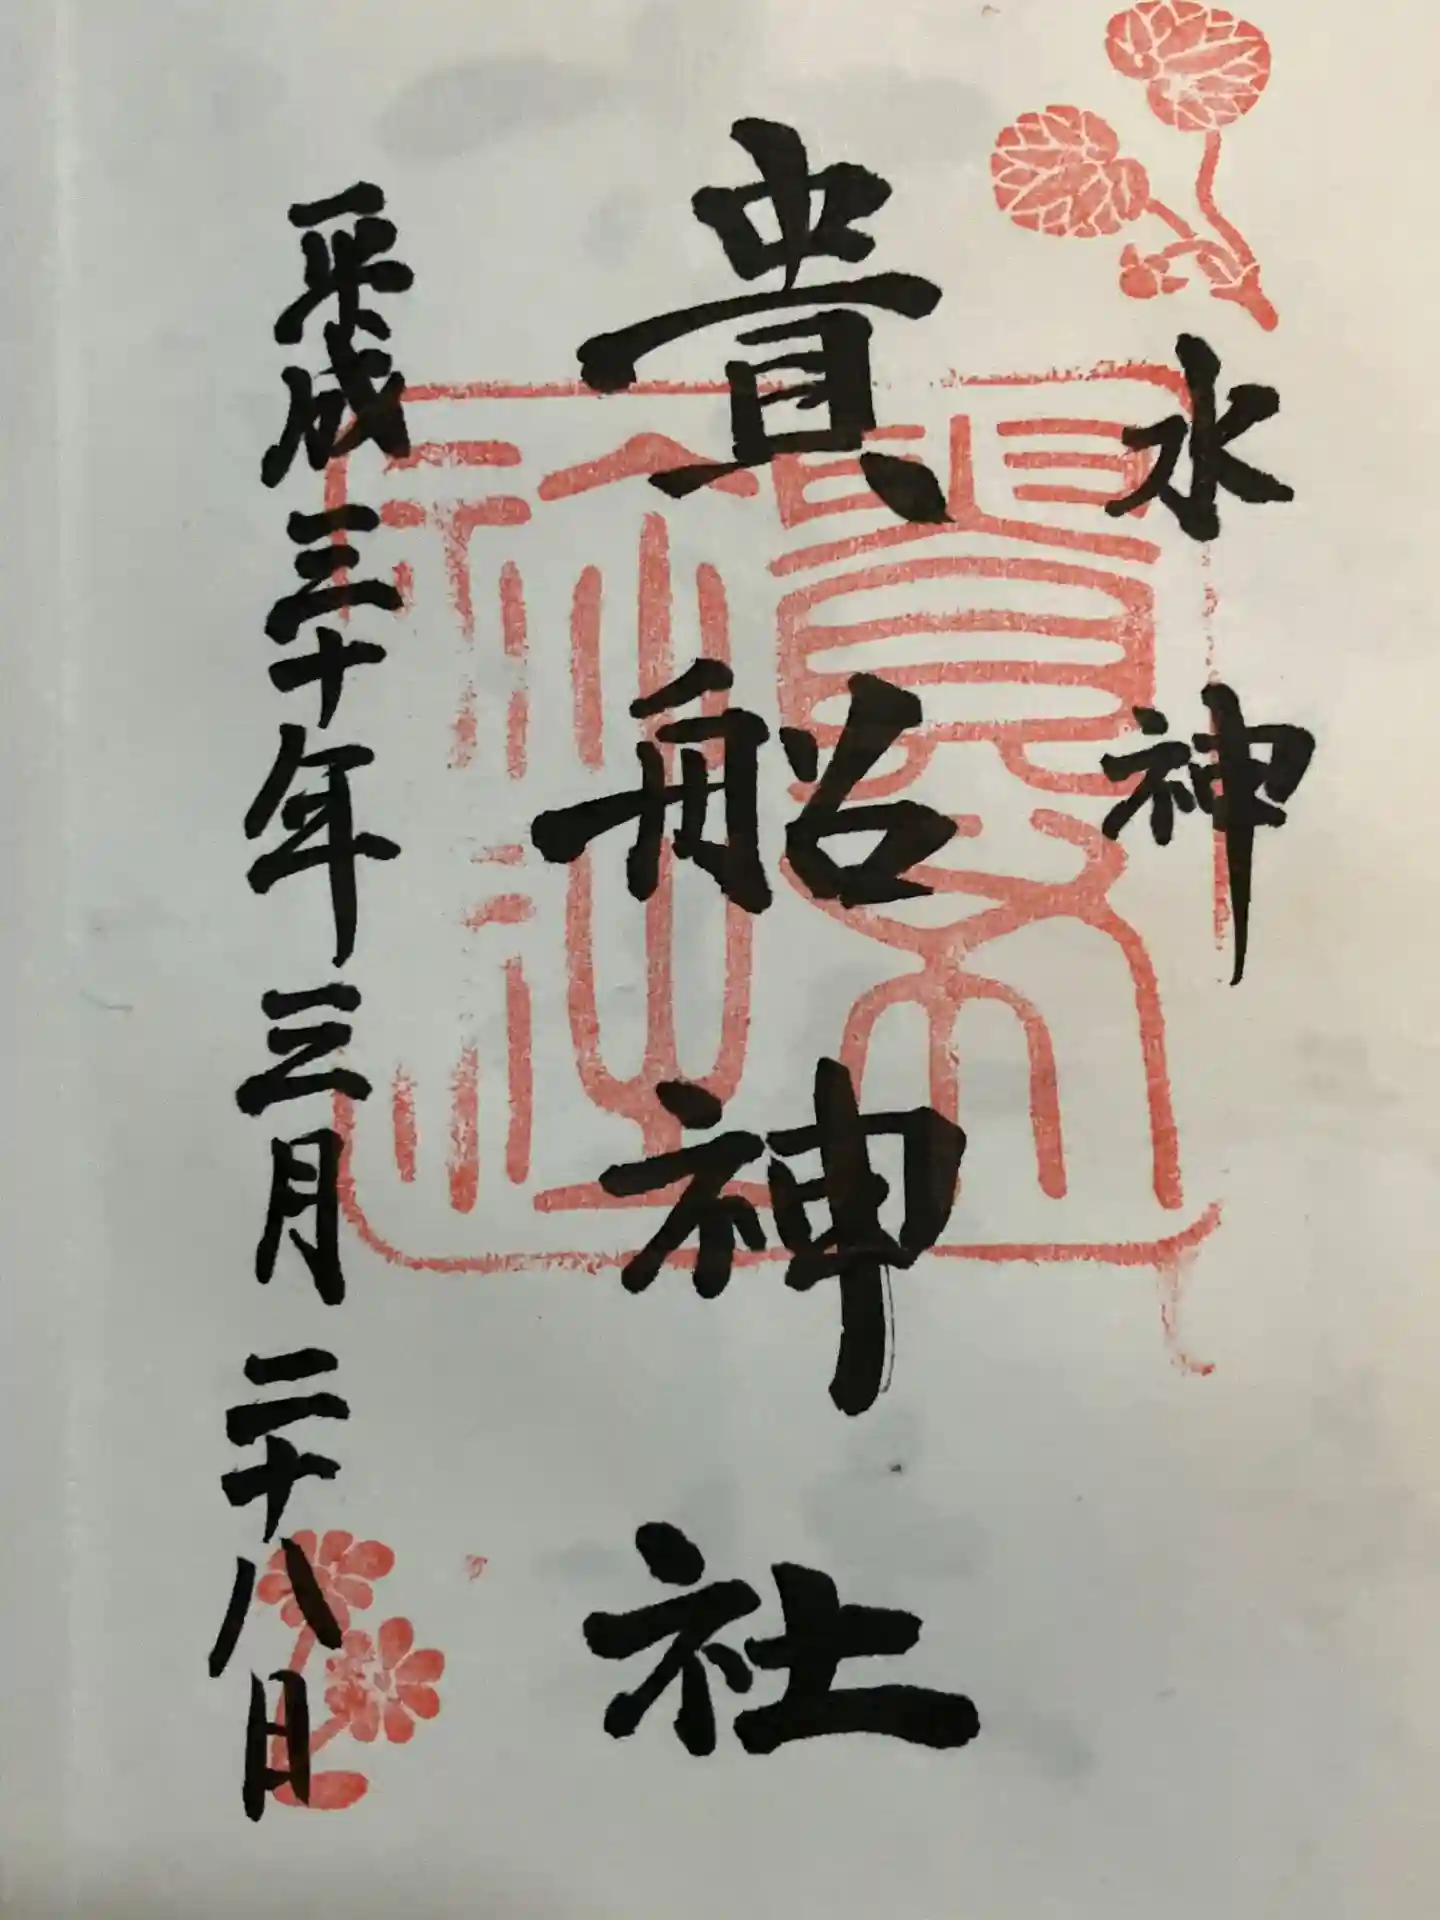 水神
貴船神社
平成三十年三月二十八日